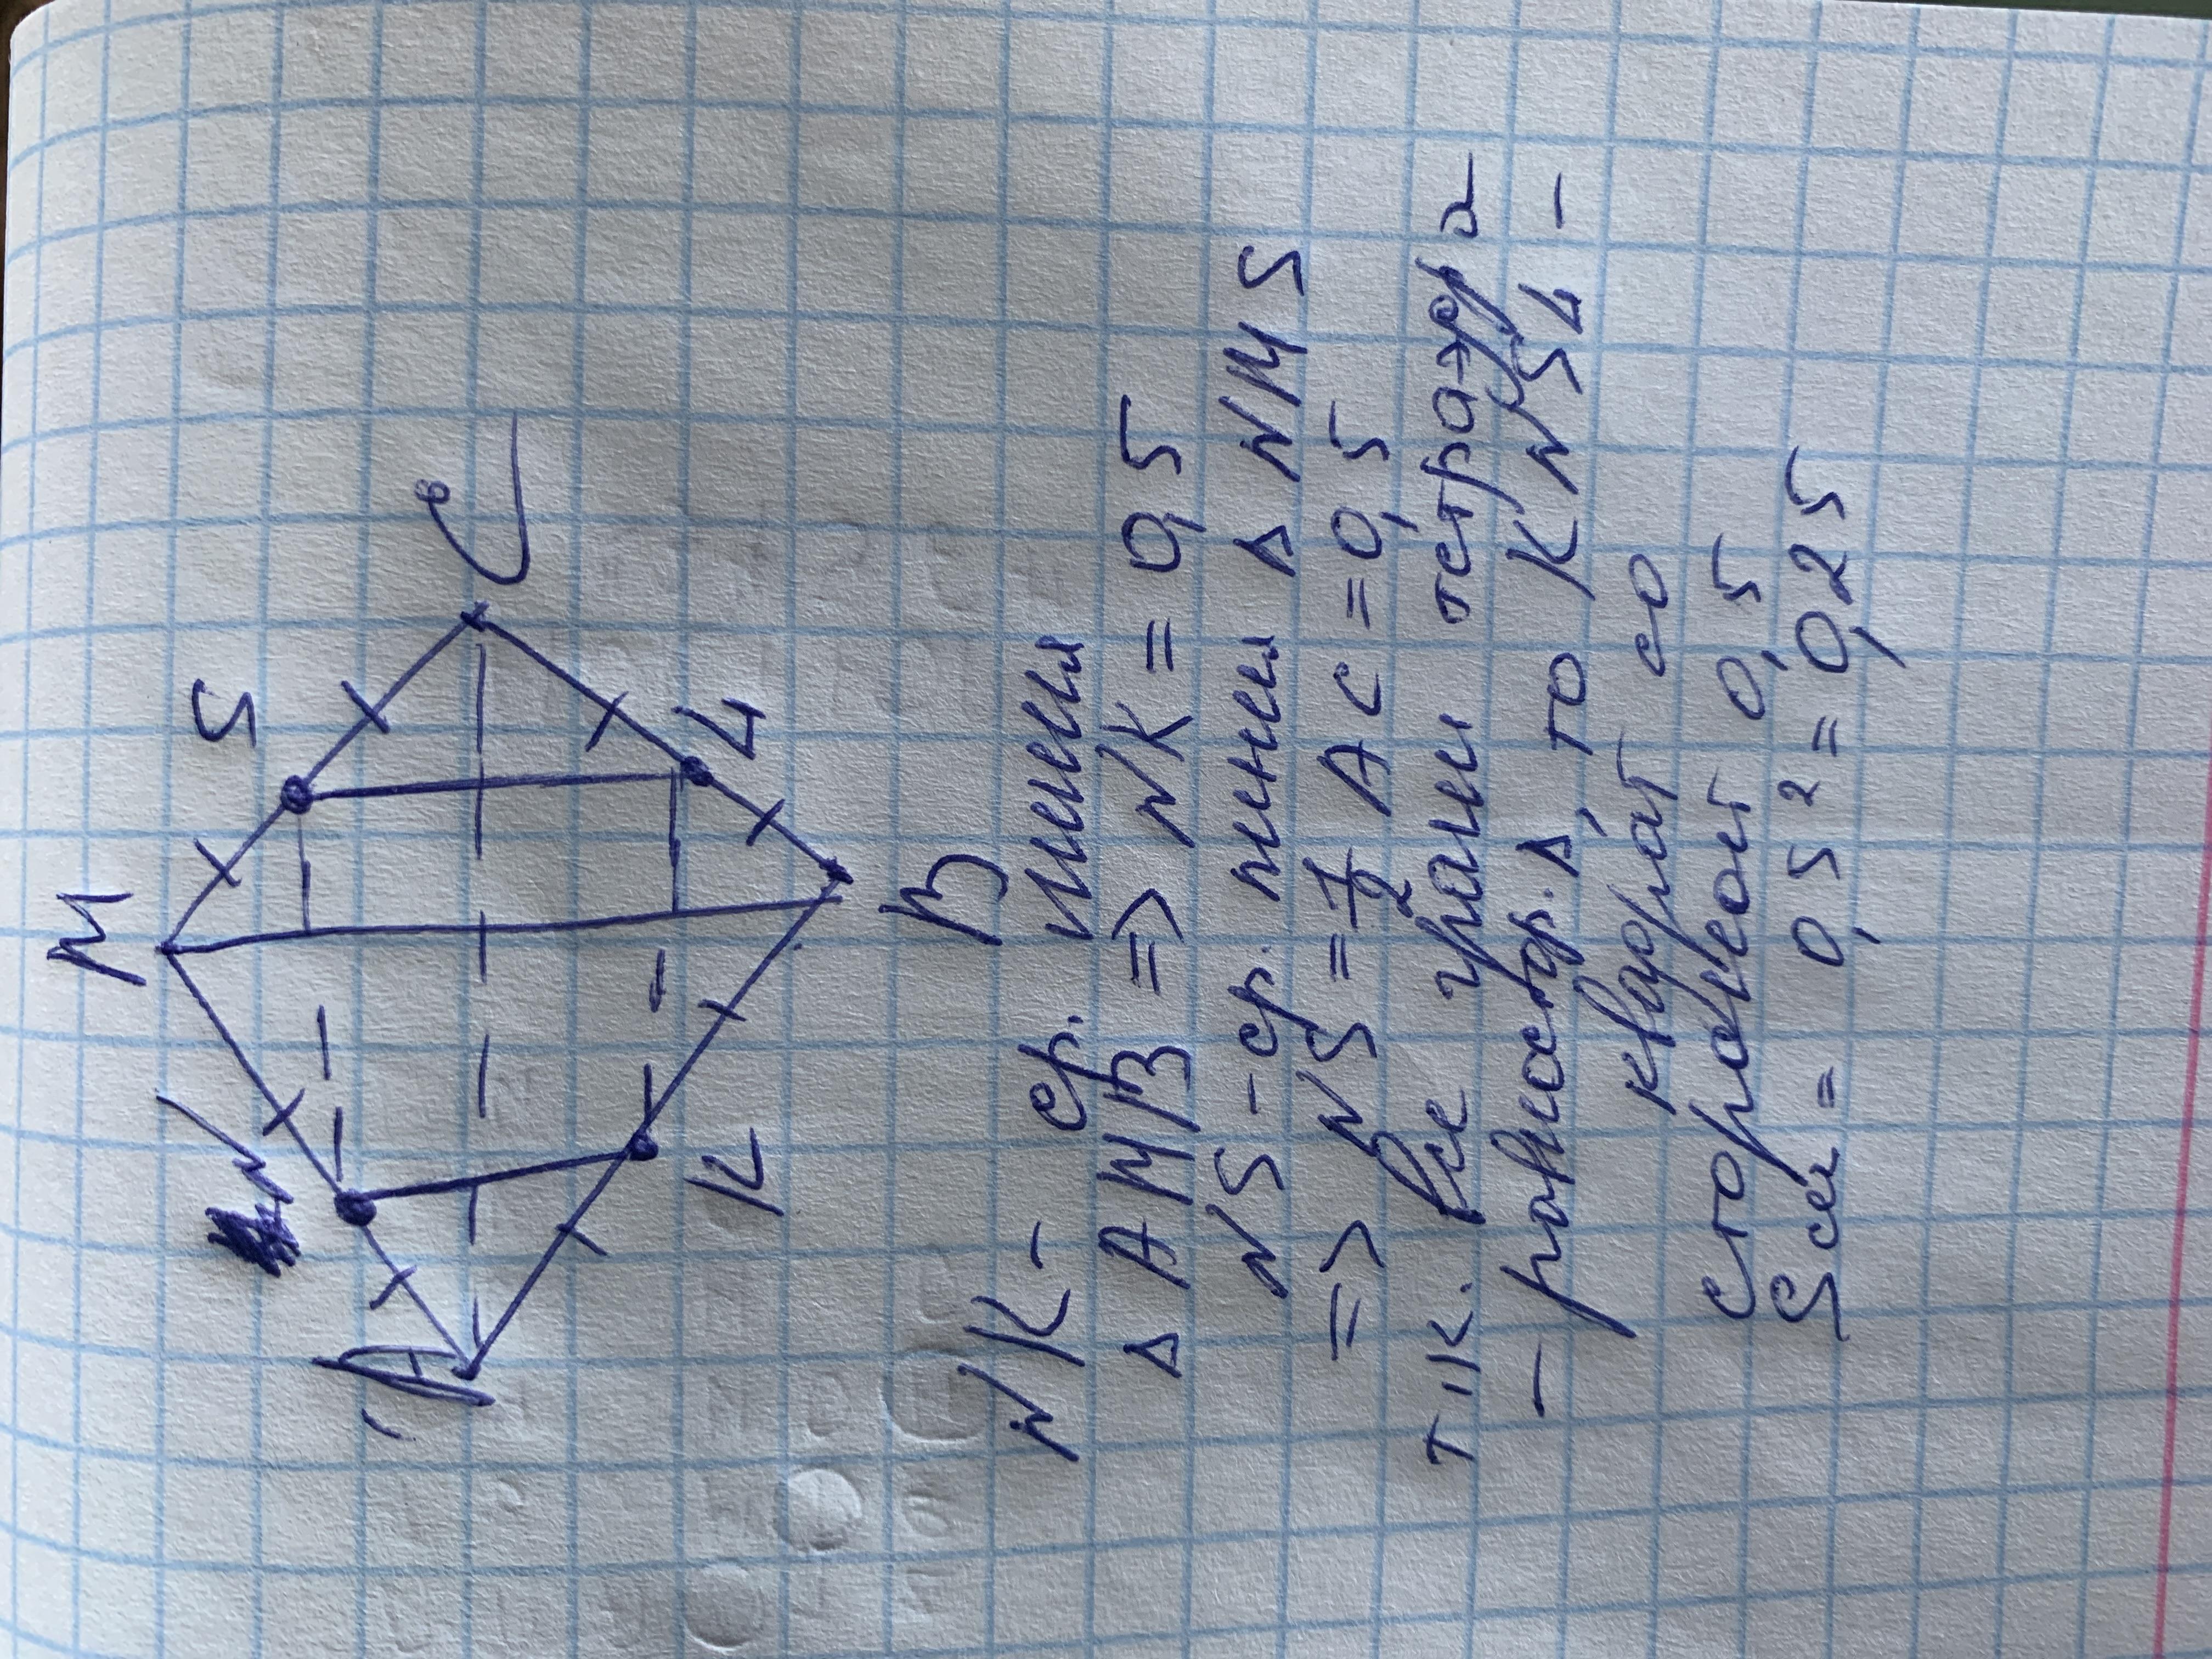 M
S
N
A
C
L
K
B
NK - ср. линия
Δ AMB => NK = 0,5
NS - ср. линия Δ NMS
=> NS = 1/2 AC = 0,5
т.к. все грани тетраэдра
- равностор. Δ, то KNSL -
квадрат со
стороной 0,5
Sсеч = 0,5² = 0,25